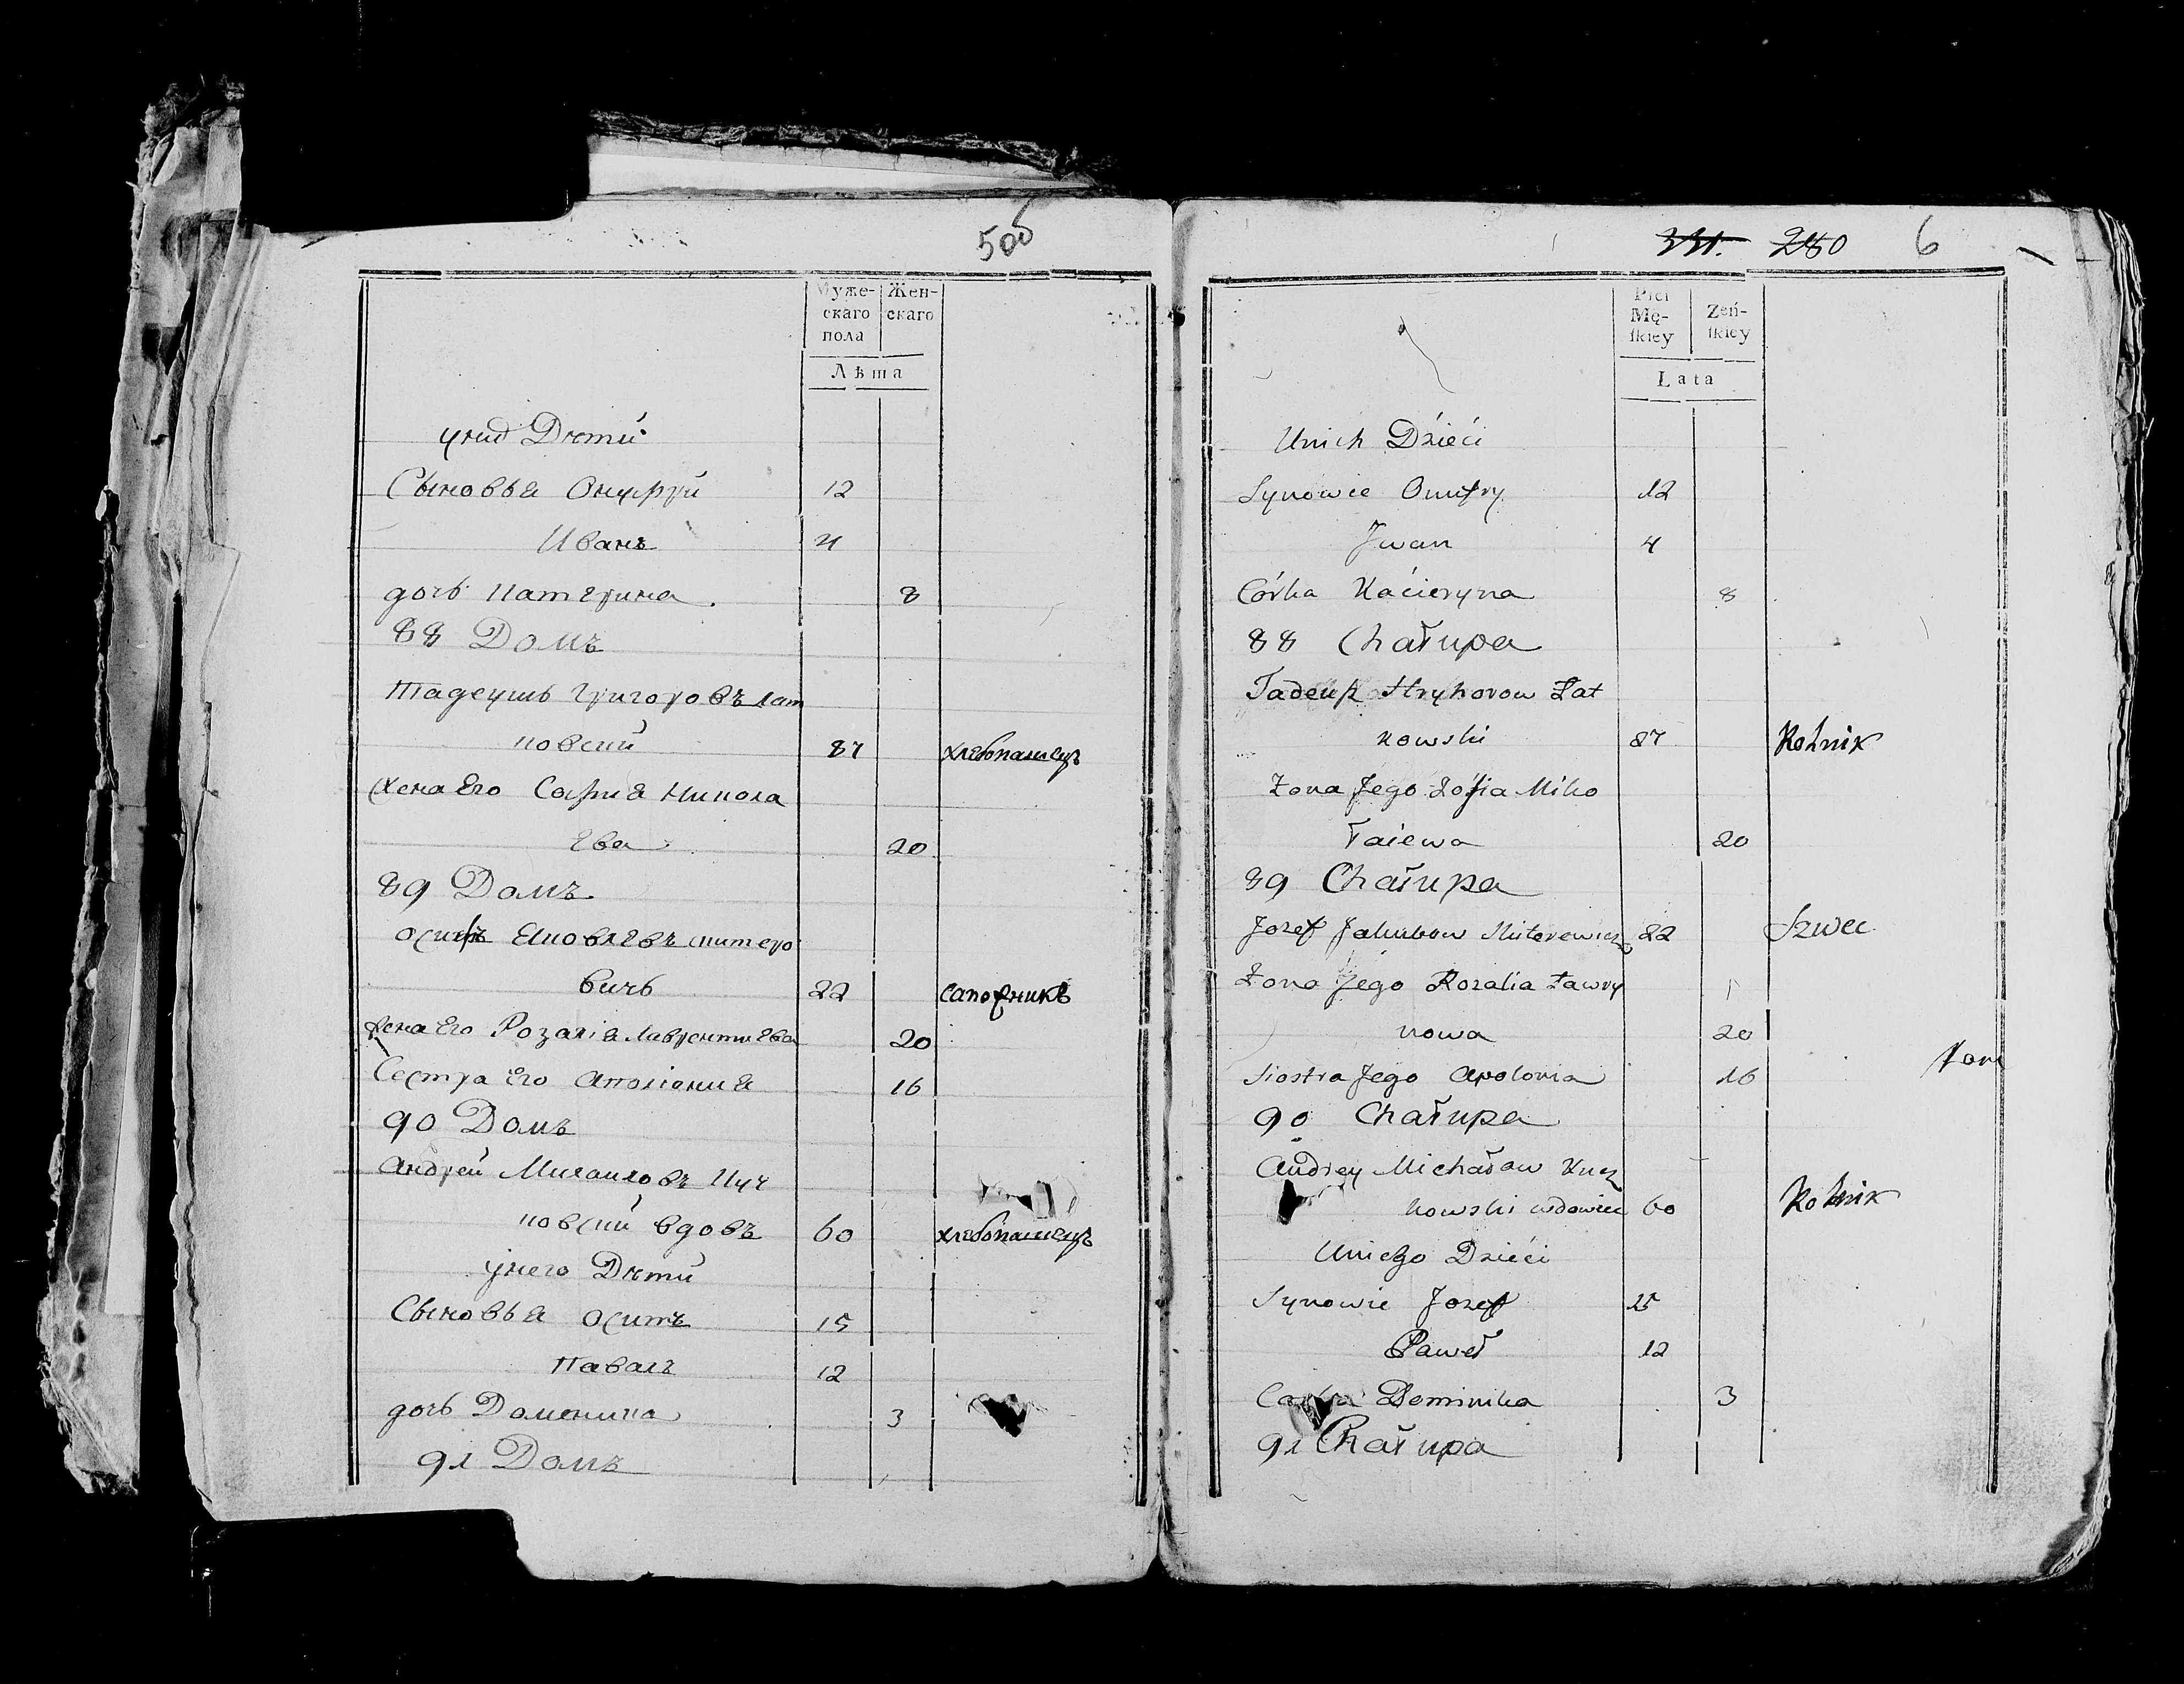 506
Муже-
скаго
пола
Жен-
скаго
Лѣта
унид Дѣти
Сыновья Онуфрій 12
Иванъ 4
дочь Катерина. 8
88 Домъ
Тадеушь Григоровъ Лат
ковскій 87 хлебопашецъ
Жена Его София Никола
Ева 20
89 Домъ
Осипъ Яковлевъ Митеро
вичь 22 сапожникъ
Жена Его Розалія Лаврентиева 20
Сестра Его Аполіония 16
90 Домъ
Андрей Михаиловъ Куч
ковскій вдовъ 60 хлебопашецъ
унего Дѣти
Сыновья Осипъ 15
Павалъ 12
дочь Доменика 3
91 Домъ
280 6
Płci
Mę-
ſkiey
Żeń-
ſkiey
Lata
Unich Dzieći
Synowie Onufry 12
Jwan 4
Córka Kacieryna 8
88 Chałupa
Tadeuſz Hryhorow Łat
kowski 87 Rolnik
Żona Jego Zofia Miko
łaiewa 20
89 Chałupa
Jozef Jakubow Miterewicz 22 Szwec
Żona Jego Rozalia Ławry
nowa 20
Siostra Jego Apolonia 16
90 Chałupa
Andrey Michałow Kucz
kowski wdowiec 60 Rolnik
Uniego Dzieći
Synowie Jozef 15
Paweł 12
Corka Dominika 3
91 Chałupa